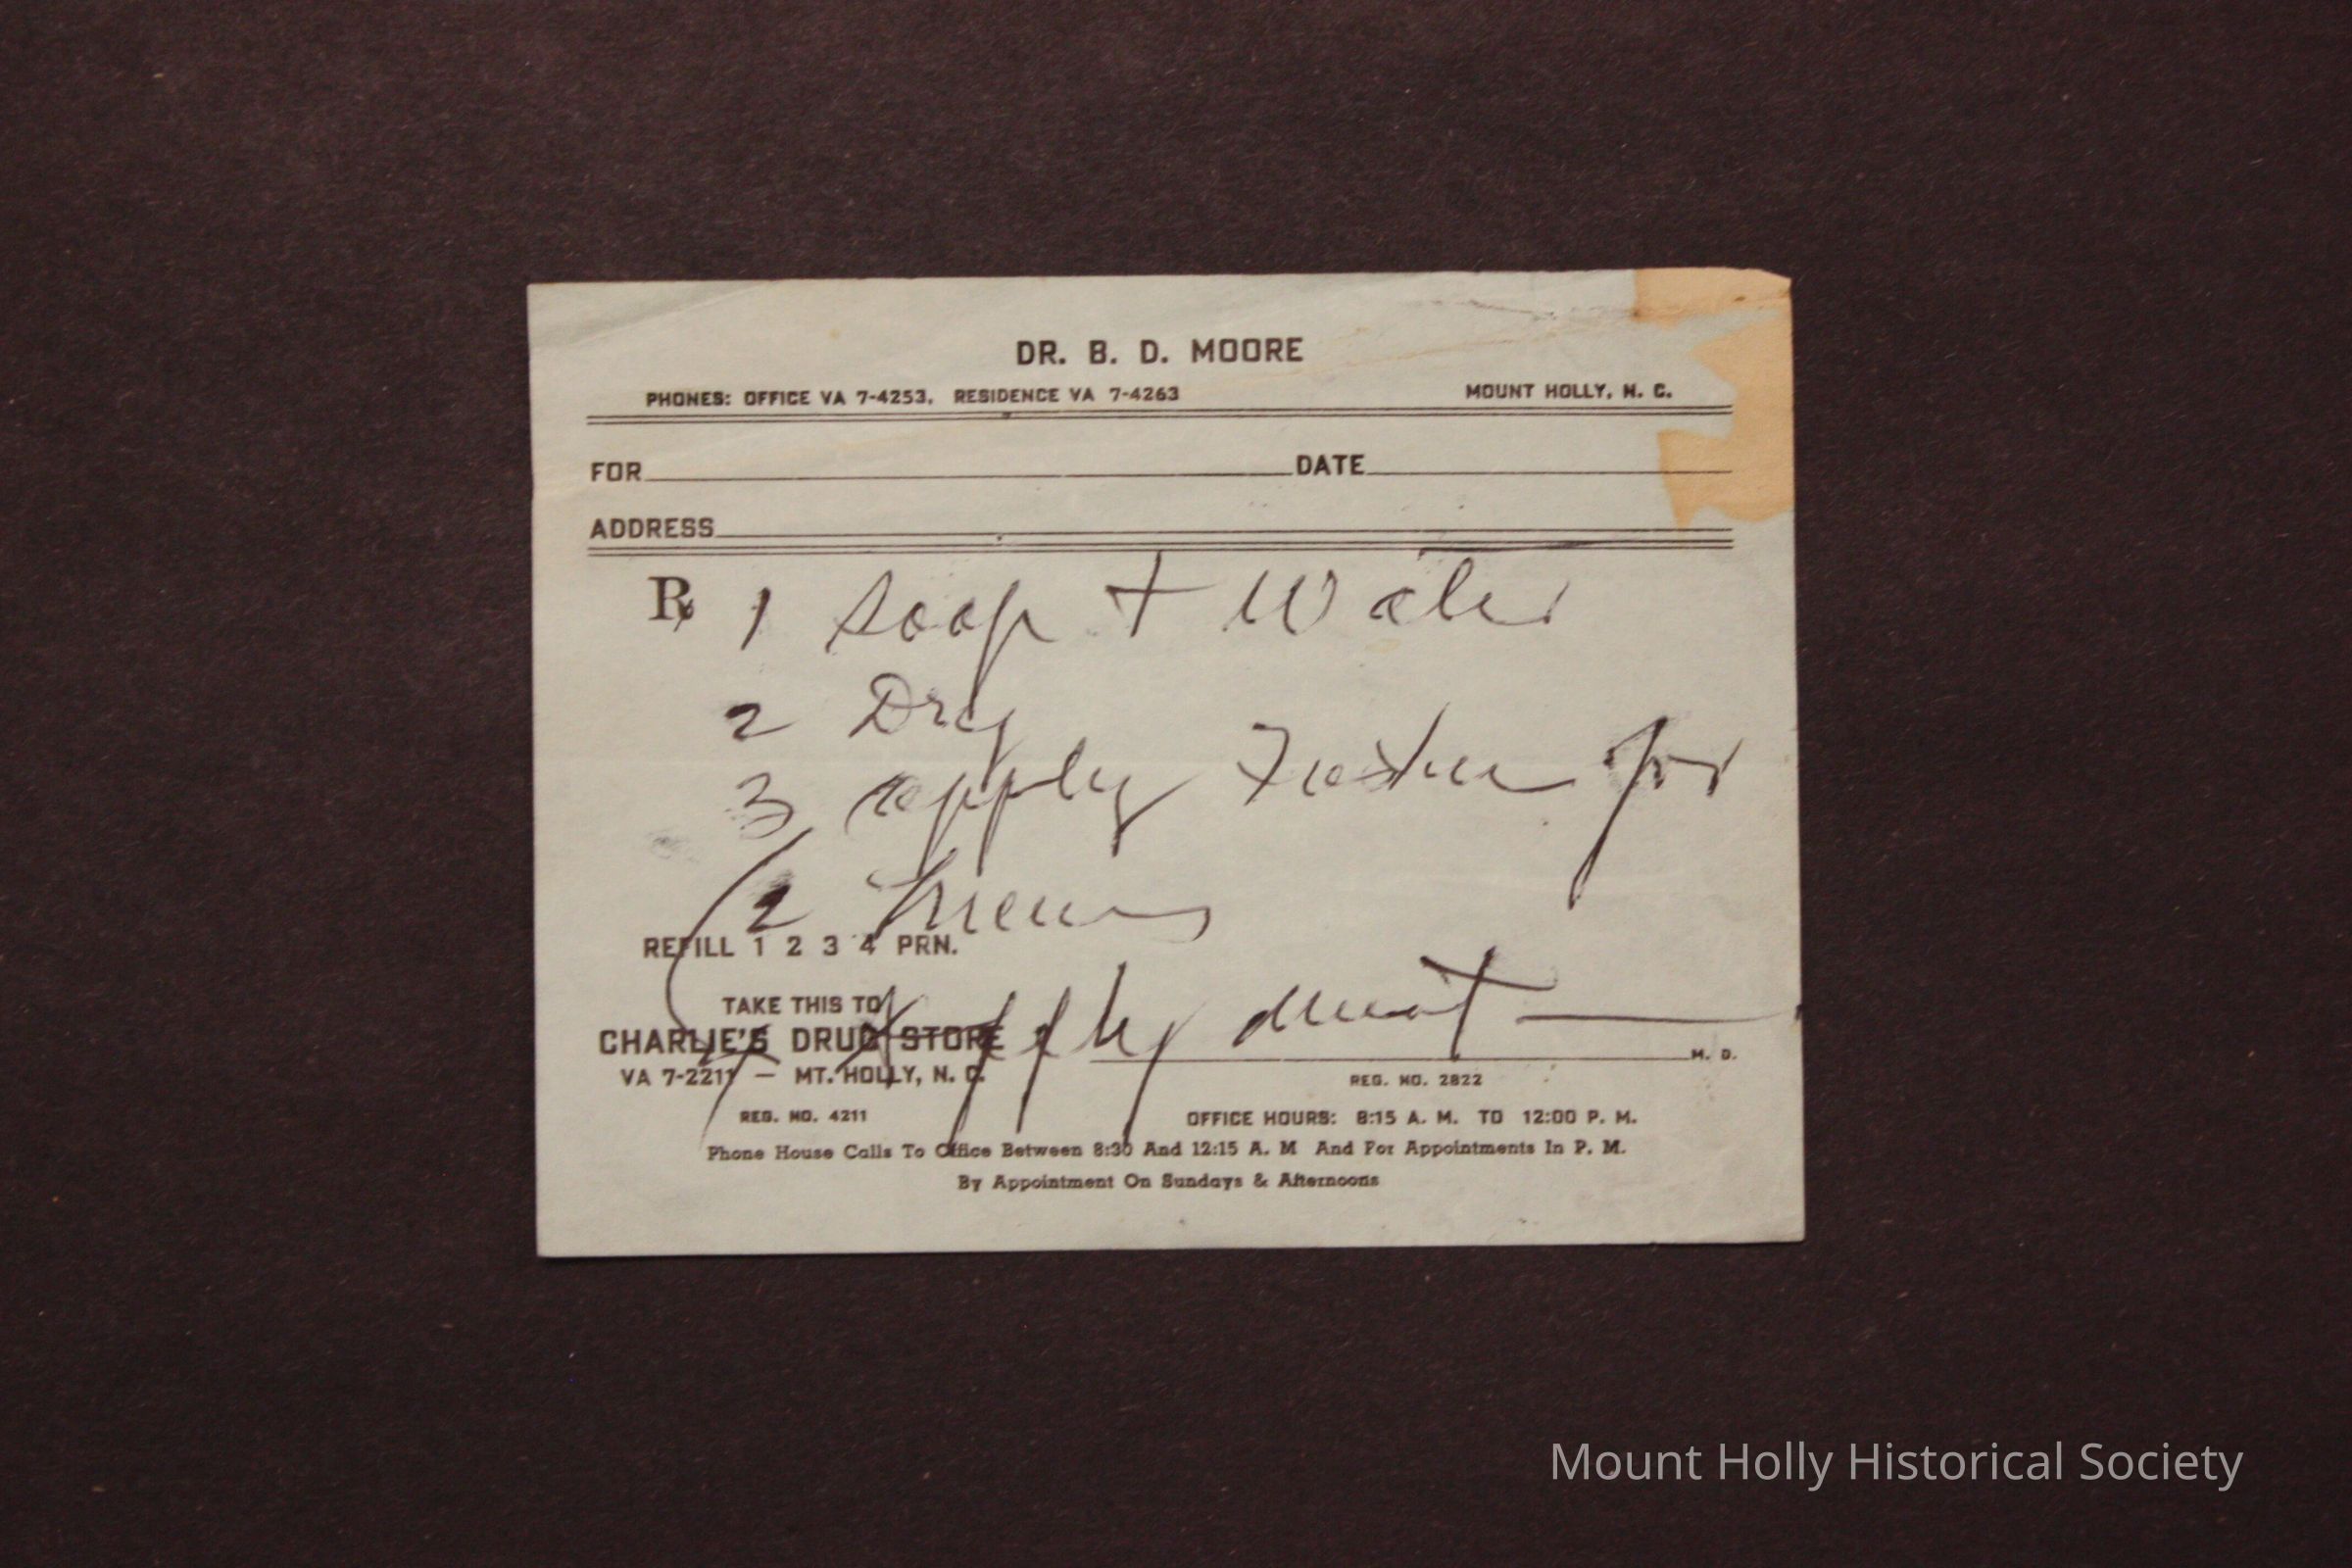 DR. B. D. MOORE
PHONES: OFFICE VA 7-4253, RESIDENCE VA 7-4263 MOUNT HOLLY, N. C.
FOR DATE
ADDRESS
℞ 1 Soap + Water
2 Dry
3 apply for
2
REFILL 1 2 3 4 PRN.
4 apply
TAKE THIS TO
CHARLIE'S DRUG STORE
M. D.
VA 7-2211 — MT. HOLLY, N. C.
REG. NO. 2822
REG. NO. 4211
OFFICE HOURS: 8:15 A. M. TO 12:00 P. M.
Phone House Calls To Office Between 8:30 And 12:15 A. M And For Appointments In P. M.
By Appointment On Sundays & Afternoons
Mount Holly Historical Society